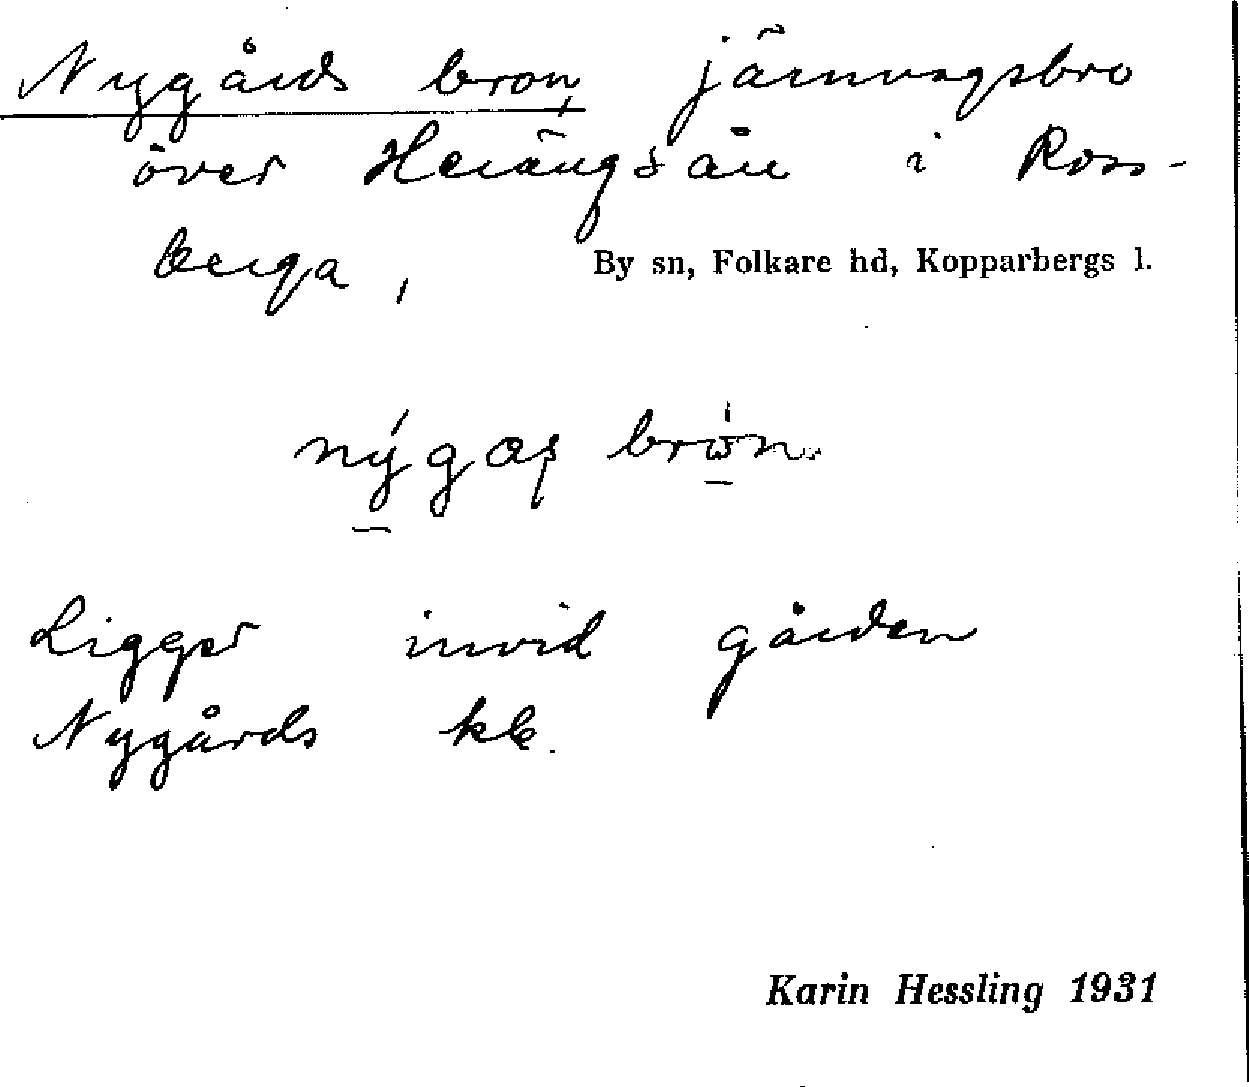 Nygårds bron, järnvägsbro
över Herängsån i Ross-
berga,
By sn, Folkare hd, Kopparbergs l.
nýgaş brön.
Ligger invid gården
Nygårds kb.
Karin Hessling 1931